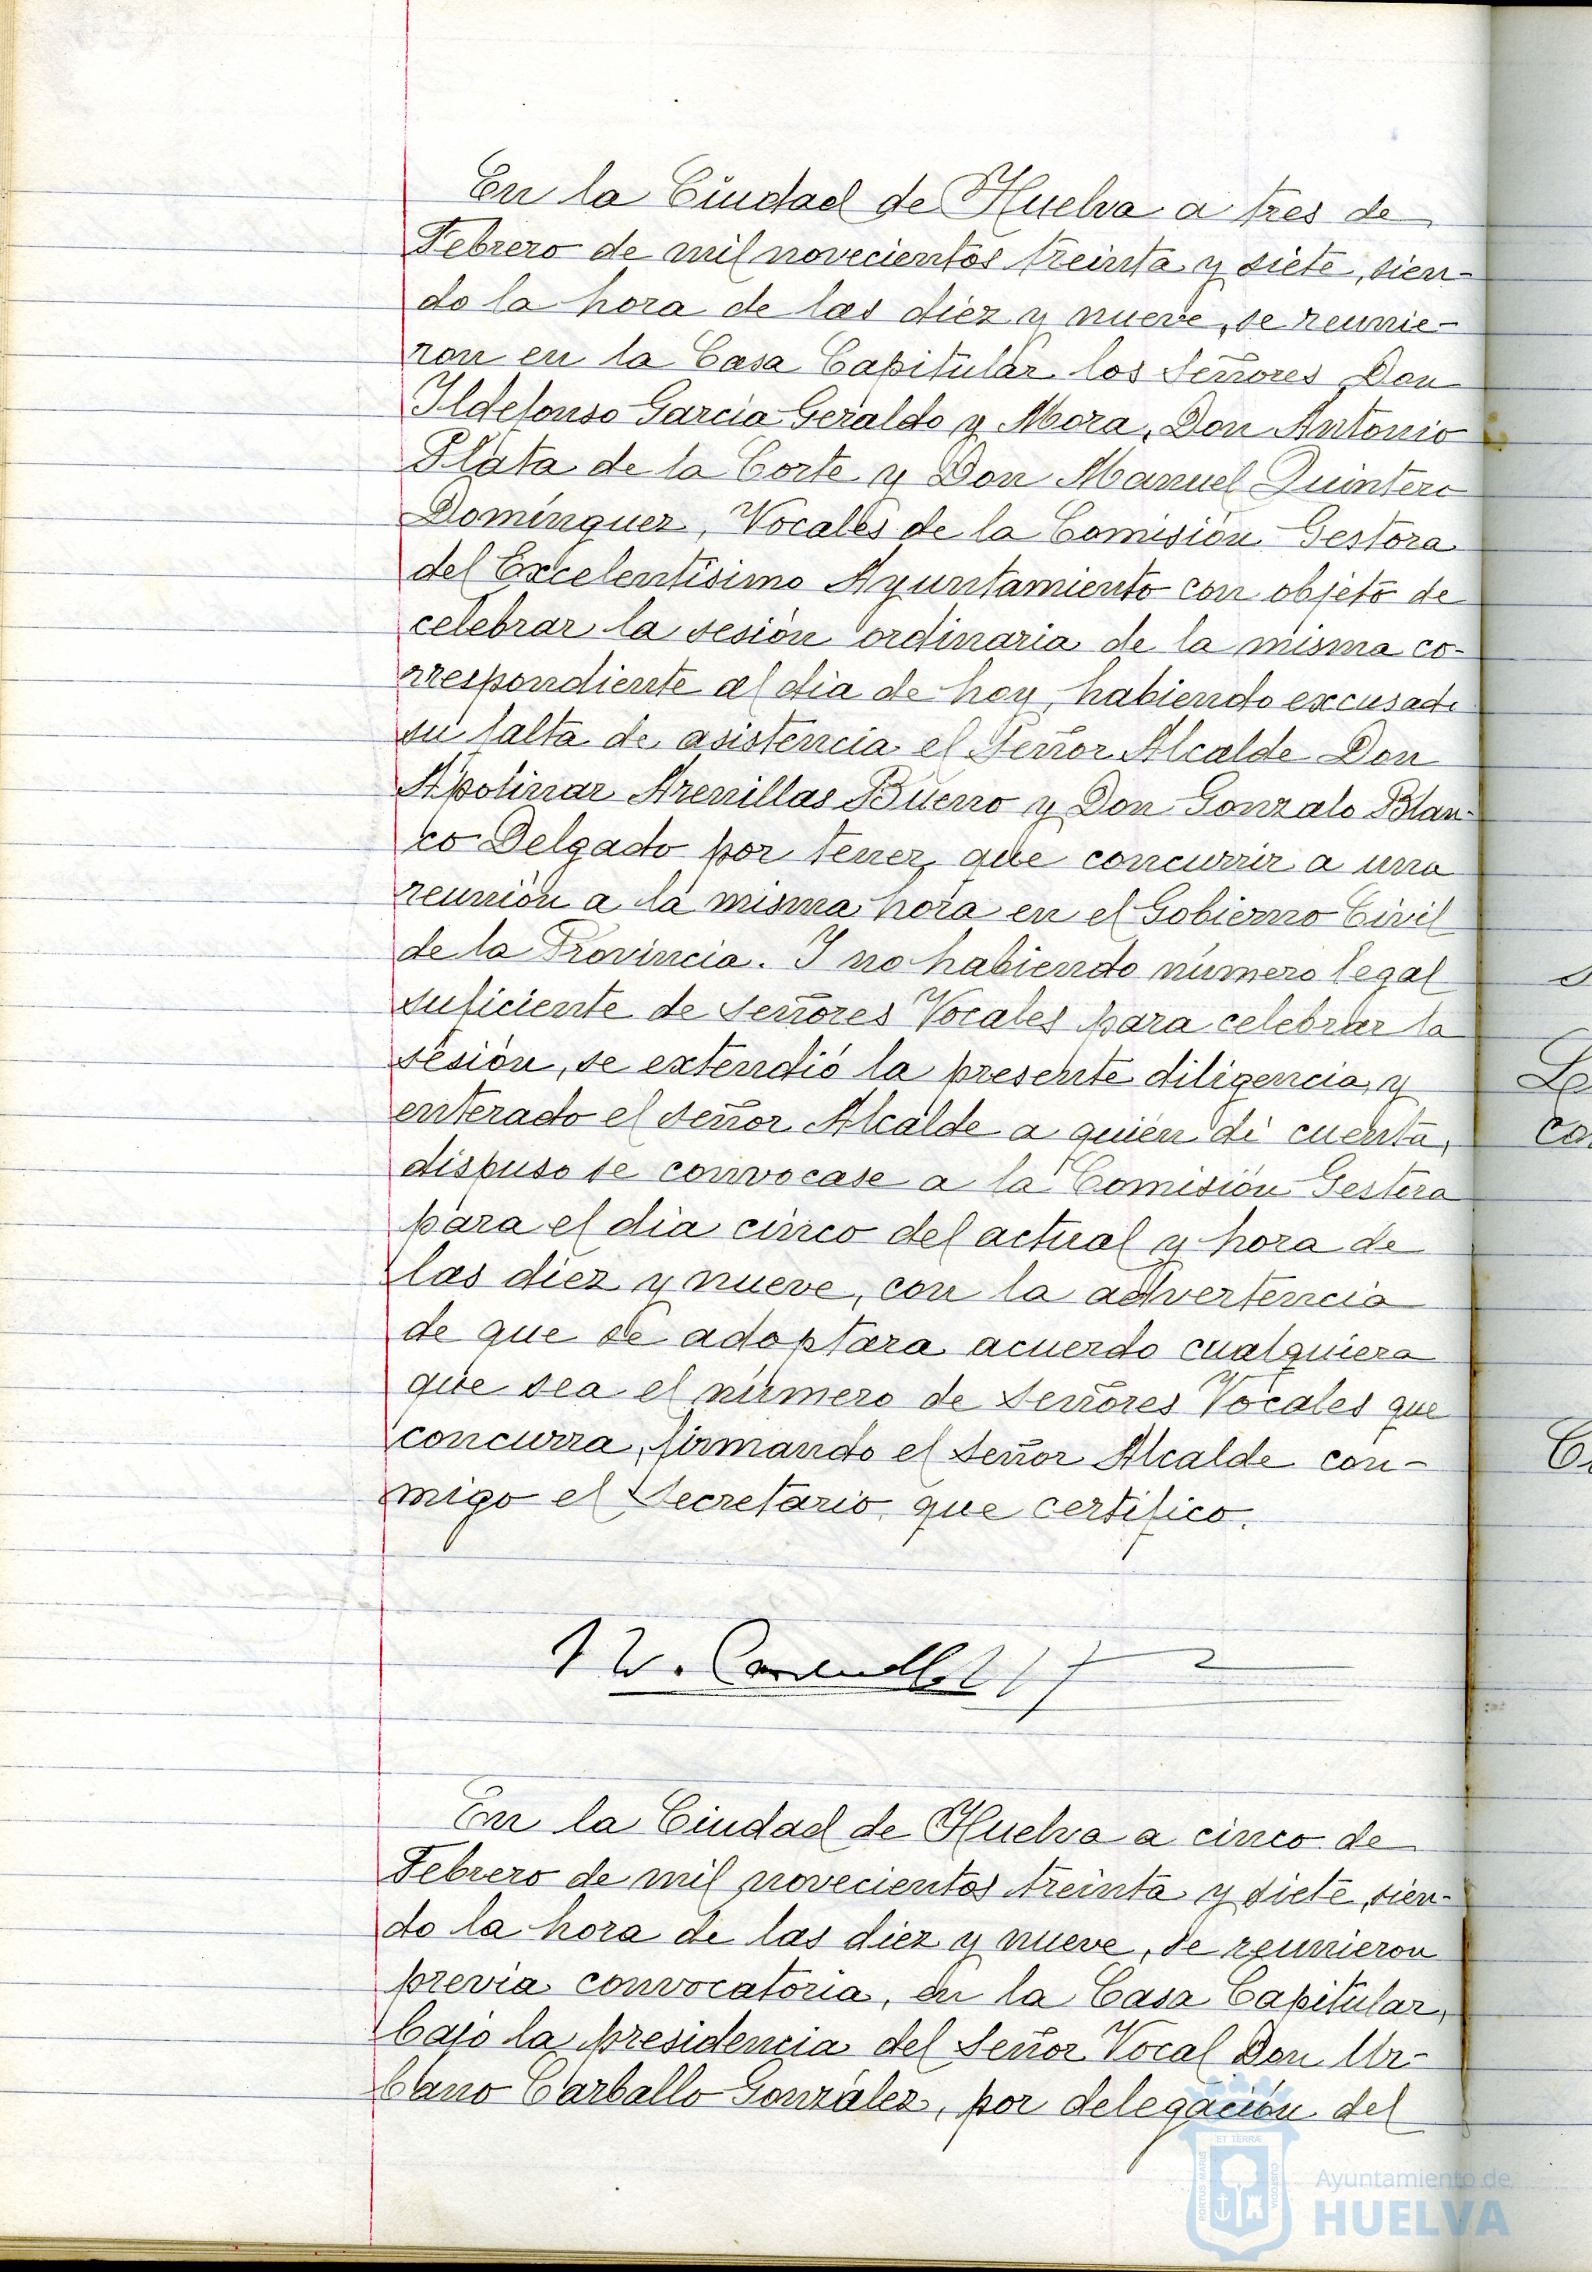 En la Ciudad de Huelva a tres de
Febrero de mil novecientos treinta y siete, sien-
do la hora de las diez y nueve, se reunie-
ron en la Casa Capitular los Señores Don
Ildefonso García Geraldo y Mora, Don Antonio
Plata de la Corte y Don Manuel Quintero
Domínguez, Vocales de la Comisión Gestora
del Excelentísimo Ayuntamiento con objeto de
celebrar la sesión ordinaria de la misma co-
rrespondiente al dia de hoy, habiendo excusado
su falta de asistencia el Señor Alcalde Don
Apolinar Arenillas Bueno y Don Gonzalo Blan-
co Delgado por tener que concurrir a una
reunión a la misma hora en el Gobierno Civil
de la Provincia. Y no habiendo número legal
suficiente de señores Vocales para celebrar la
sesión, se extendió la presente diligencia, y
enterado el señor Alcalde a quién dí cuenta,
dispuso se convocase a la Comisión Gestora
para el dia cinco del actual y hora de
las diez y nueve, con la advertencia
de que se adoptara acuerdo cualquiera
que sea el número de Señores Vocales que
concurra, firmando el señor Alcalde con-
migo el Secretario, que certifico.
En la Ciudad de Huelva a cinco de
Febrero de mil novecientos treinta y siete, sien-
do la hora de las diez y nueve, se reunieron
previa convocatoria, en la Casa Capitular,
bajo la presidencia del Señor Vocal Don Ur-
bano Carballo González, por delegación del
PORTUS MARIS
ET TERRÆ
CUSTODIA
Ayuntamiento de
HUELVA